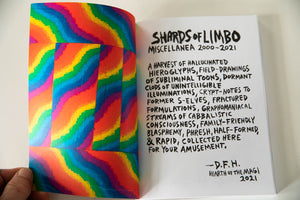 SHARDS OF LIMBO
MISCELLANEA 2000-2021
A HARVEST OF HALLUCINATED
HIEROGLYPHS, FIELD-DRAWINGS
OF SUBLIMINAL TOONS, DORMANT
CLUDS OF UNINTELLIGIBLE
ILLUMINATIONS, CRYPT-NOTES TO
FORMER S-ELVES, FRACTURED
FORMULATIONS, GRAPHOMANICAL
STREAMS OF CABBALISTIC
CONSCIOUSNESS, FAMILY-FRIENDLY
BLASPHEMY, PHRESH, HALF-FORMED,
& RAPID, COLLECTED HERE
FOR YOUR AMUSEMENT.
—D.F.H.
HEARTH OF THE MAGI
2021